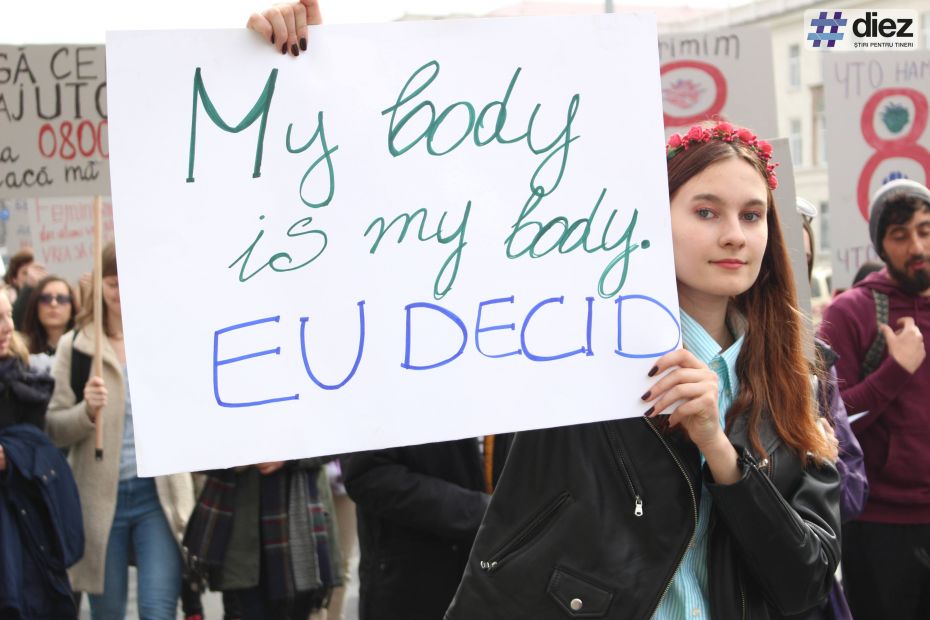 #diez
ȘTIRI PENTRU TINERI
My body
is my body.
EU DECID
CE
0800
acă mă
ЧТО НАМ
8